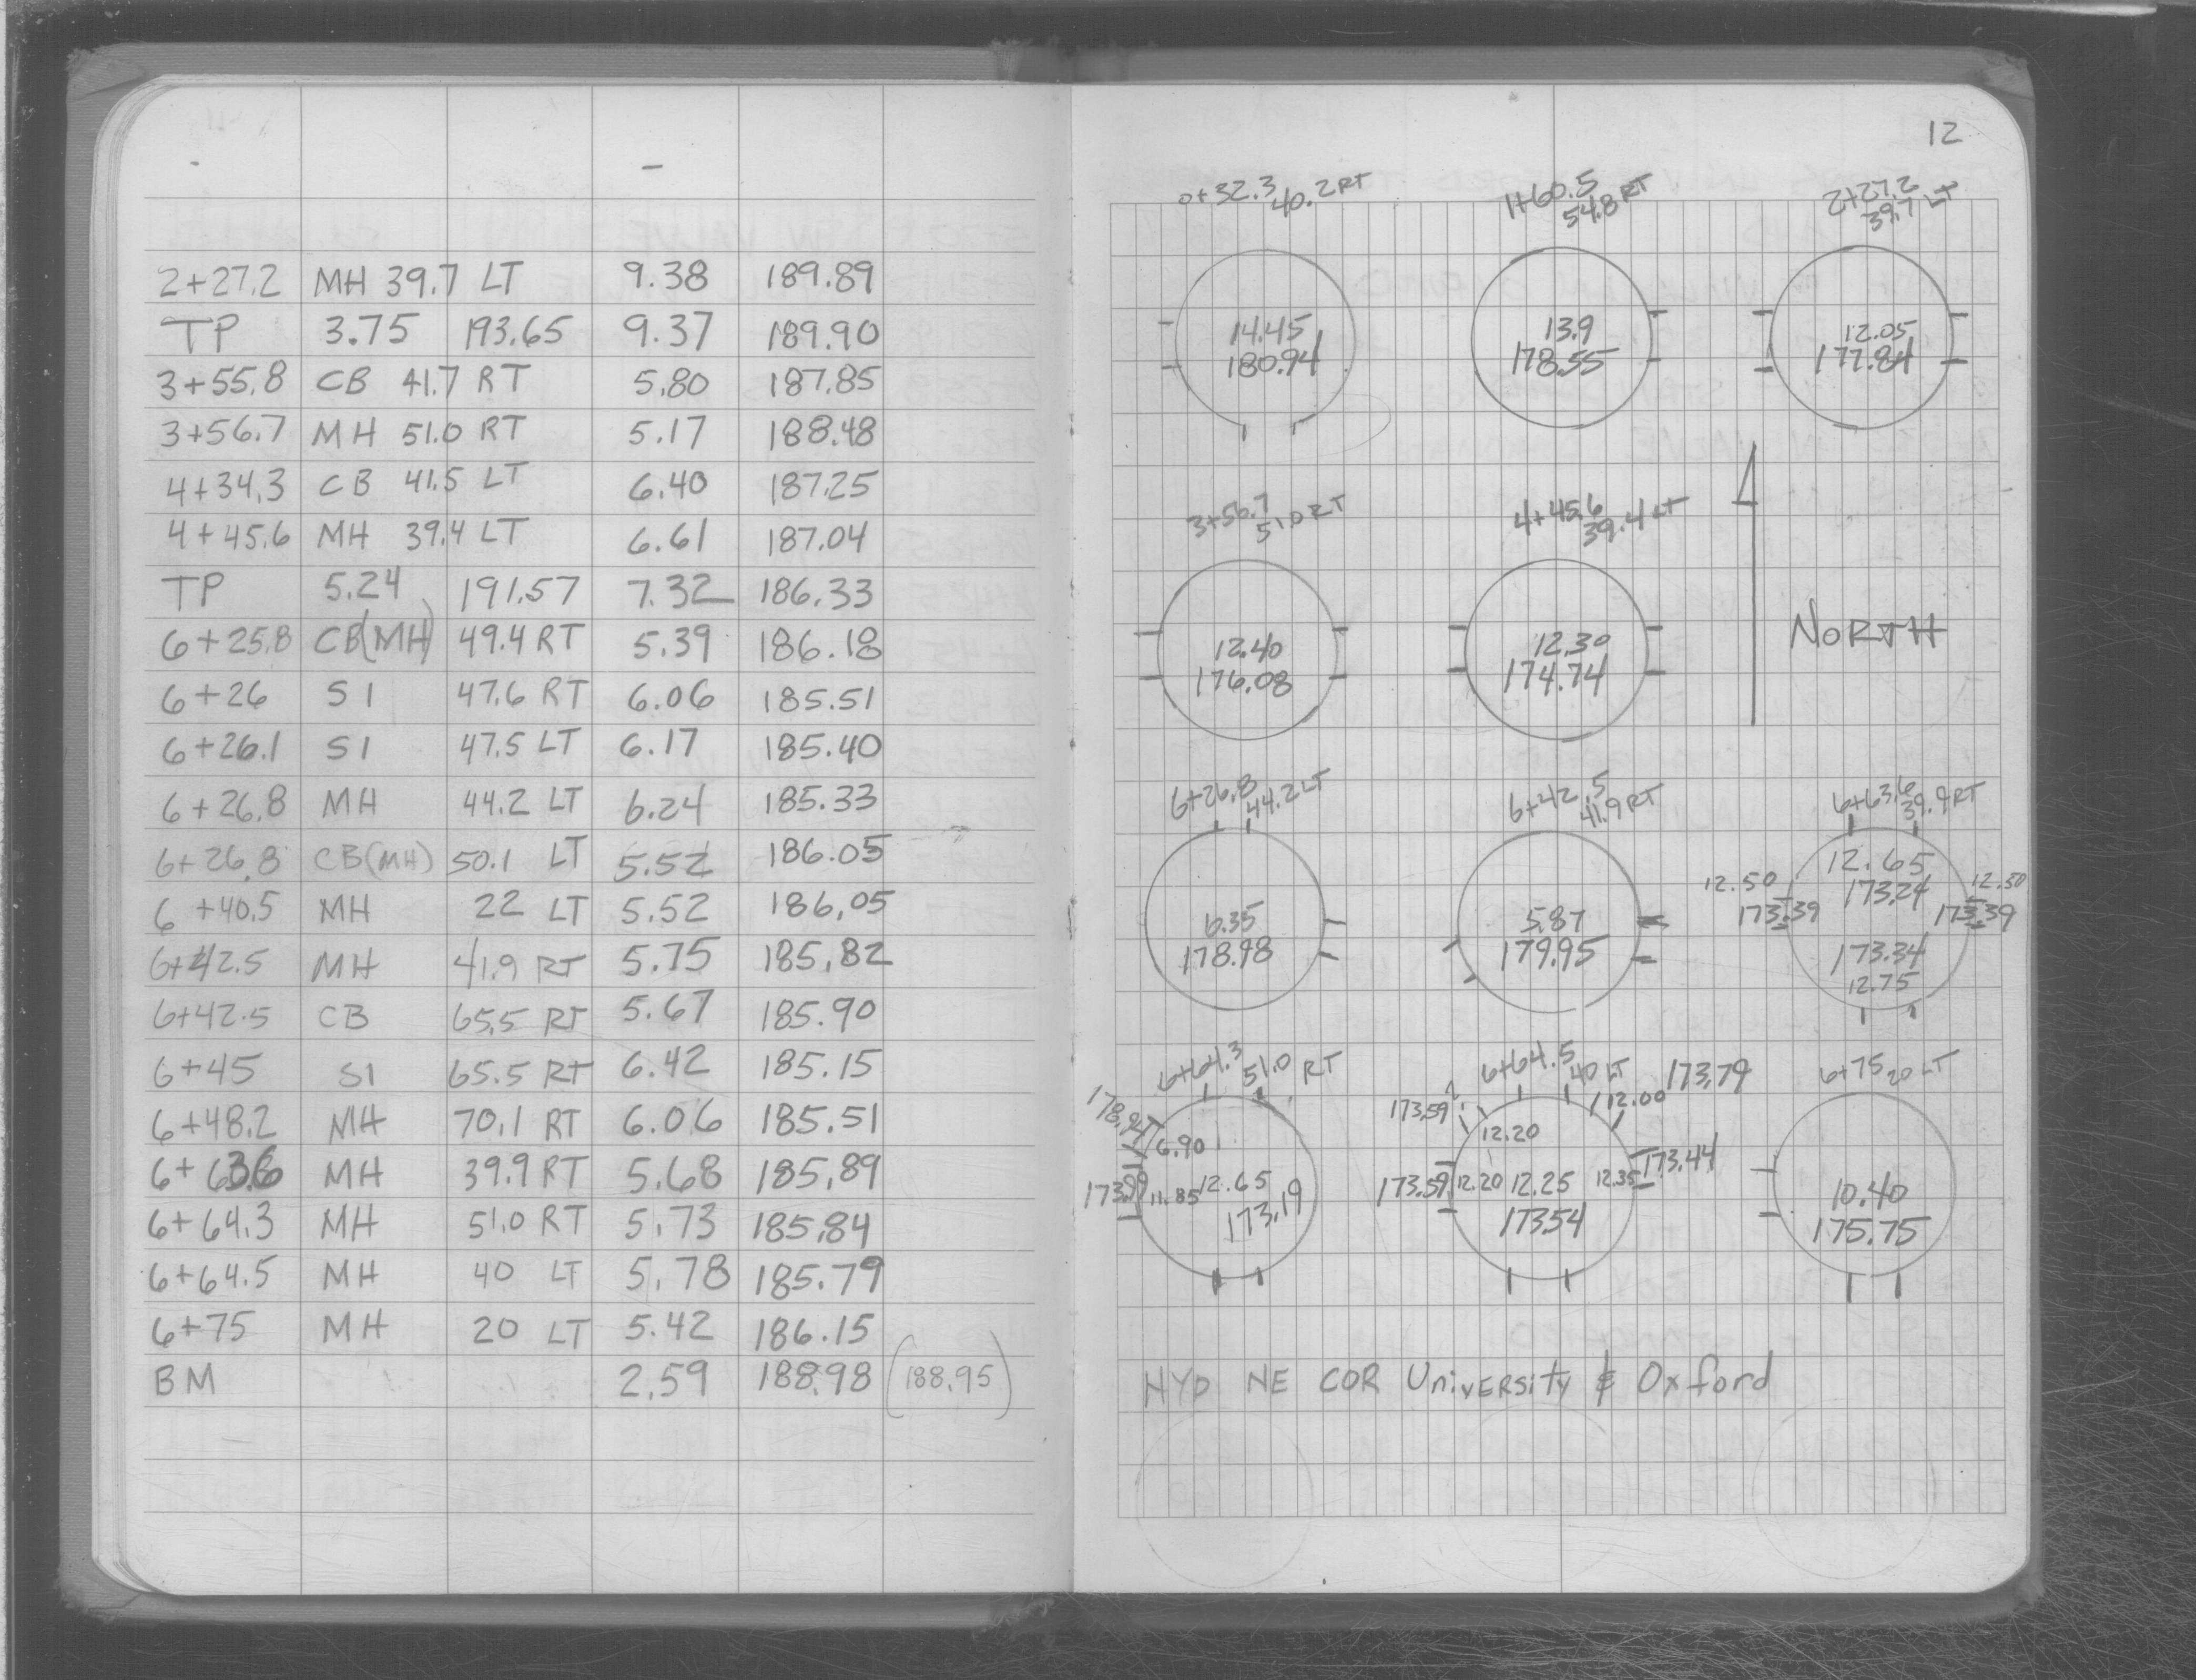 -
2+27.2 MH 39.7 LT 9.38 189.89
TP 3.75 193.65 9.37 189.90
3+55.8 CB 41.7 RT 5.80 187.85
3+56.7 MH 51.0 RT 5.17 188.48
4+34.3 CB 41.5 LT 6.40 187.25
4+45.6 MH 39.4 LT 6.61 187.04
TP 5.24 191.57 7.32 186.33
6+25.8 CB(MH) 49.4 RT 5.39 186.18
6+26 SI 47.6 RT 6.06 185.51
6+26.1 SI 47.5 LT 6.17 185.40
6+26.8 MH 44.2 LT 6.24 185.33
6+26.8 CB(MH) 50.1 LT 5.52 186.05
6+40.5 MH 22 LT 5.52 186.05
6+42.5 MH 41.9 RT 5.75 185.82
6+42.5 CB 65.5 RT 5.67 185.90
6+45 SI 65.5 RT 6.42 185.15
6+48.2 MH 70.1 RT 6.06 185.51
6+63.6 MH 39.9 RT 5.68 185.89
6+64.3 MH 51.0 RT 5.73 185.84
6+64.5 MH 40 LT 5.78 185.79
6+75 MH 20 LT 5.42 186.15
BM 2.59 188.98 (188.95)
12
0+32.3
40.2 RT
14.45
180.94
1+60.5
54.8 RT
13.9
178.55
2+27.2
39.7 LT
12.05
177.84
3+56.7
51.0 RT
12.40
176.08
4+45.6
39.4 LT
12.30
174.74
NORTH
6+26.8
44.2 LT
6.35
178.98
6+42.5
41.9 RT
5.87
179.95
6+63.6
39.9 RT
12.65
173.24
12.50
173.39
12.50
173.39
173.34
12.75
6+64.3
51.0 RT
178.94
6.90
173.99
11.85
12.65
173.19
6+64.5
40 LT
173.79
12.00
173.59
12.20
173.59
12.20
12.25
12.35
173.44
173.54
6+75
20 LT
10.40
175.75
HYD NE COR University & Oxford